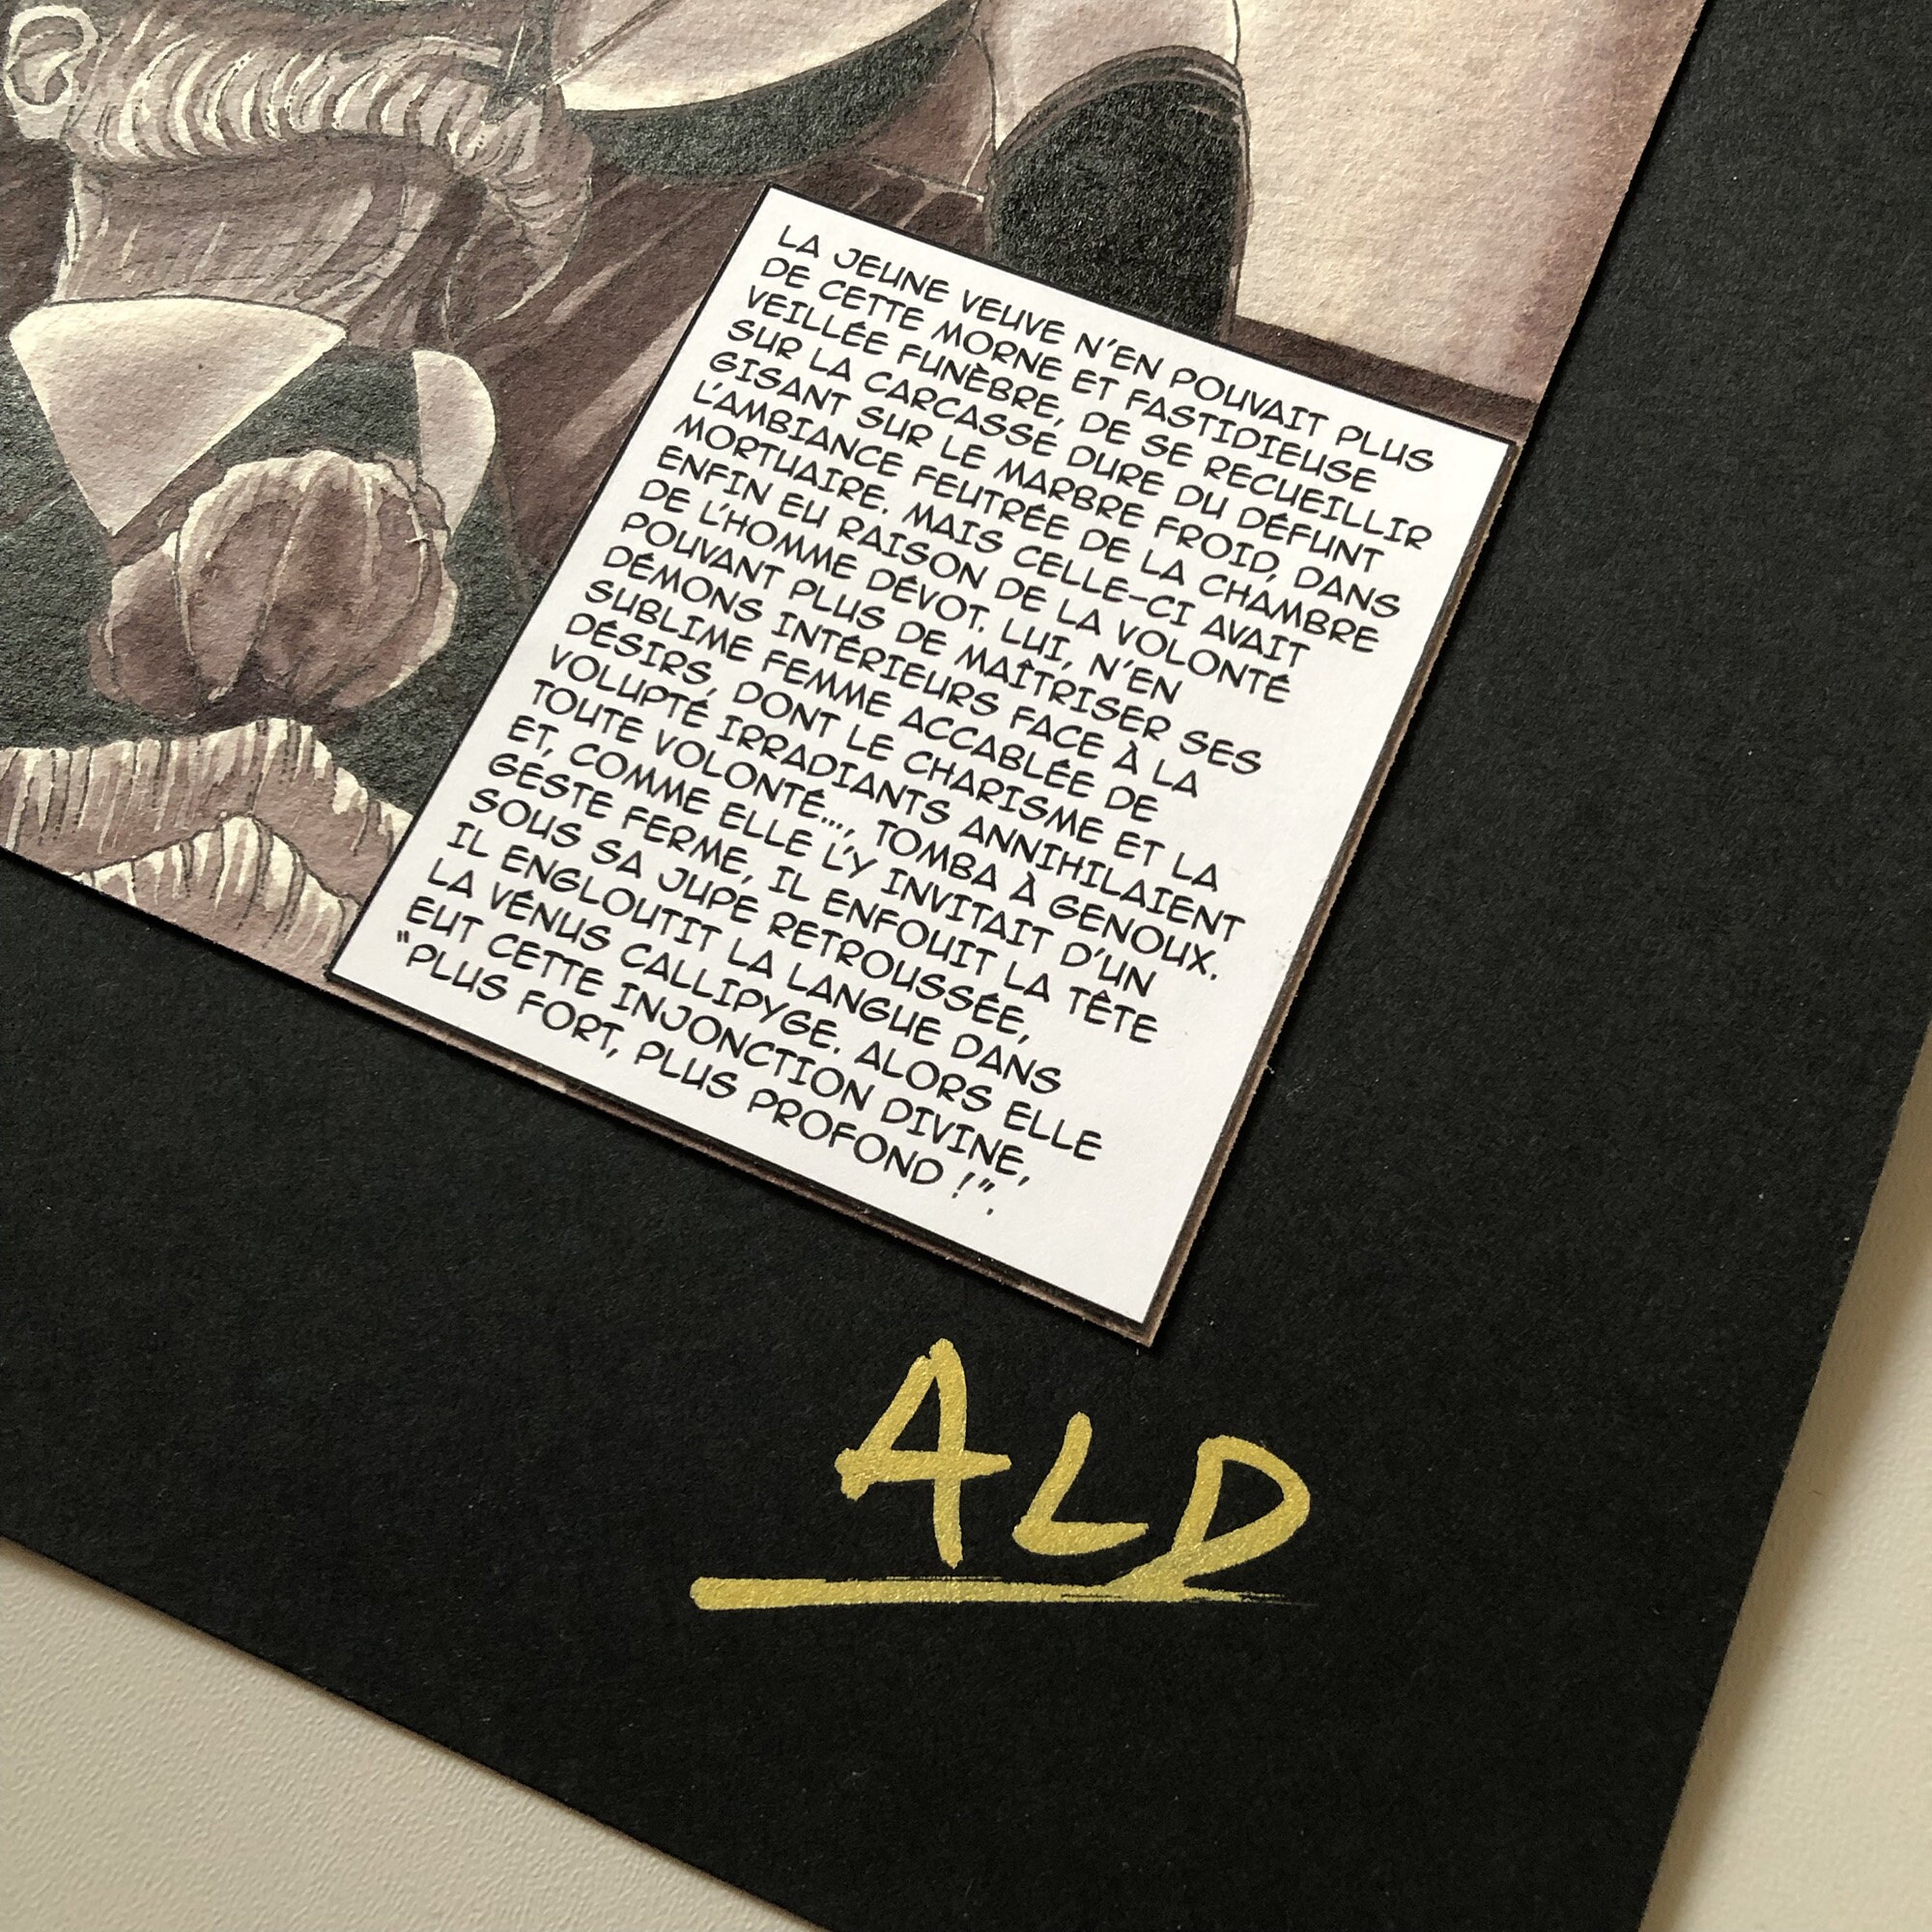 LA JEUNE VEUVE N'EN POUVAIT PLUS
DE CETTE MORNE ET FASTIDIEUSE
VEILLÉE FUNÈBRE, DE SE RECUEILLIR
SUR LA CARCASSE DURE DU DÉFUNT
GISANT SUR LE MARBRE FROID, DANS
L'AMBIANCE FEUTRÉE DE LA CHAMBRE
MORTUAIRE. MAIS CELLE-CI AVAIT
ENFIN EU RAISON DE LA VOLONTÉ
DE L'HOMME DÉVOT. LUI, N'EN
POUVANT PLUS DE MAÎTRISER SES
DÉMONS INTÉRIEURS FACE À LA
SUBLIME FEMME ACCABLÉE DE
DÉSIRS, DONT LE CHARISME ET LA
VOLUPTÉ IRRADIANTS ANNIHILAIENT
TOUTE VOLONTÉ..., TOMBA À GENOUX.
ET, COMME ELLE L'Y INVITAIT D'UN
GESTE FERME, IL ENFOUIT LA TÊTE
SOUS SA JUPE RETROUSSÉE,
IL ENGLOUTIT LA LANGUE DANS
LA VÉNUS CALLIPYGE. ALORS ELLE
EUT CETTE INJONCTION DIVINE,
"PLUS FORT, PLUS PROFOND !".
ALD